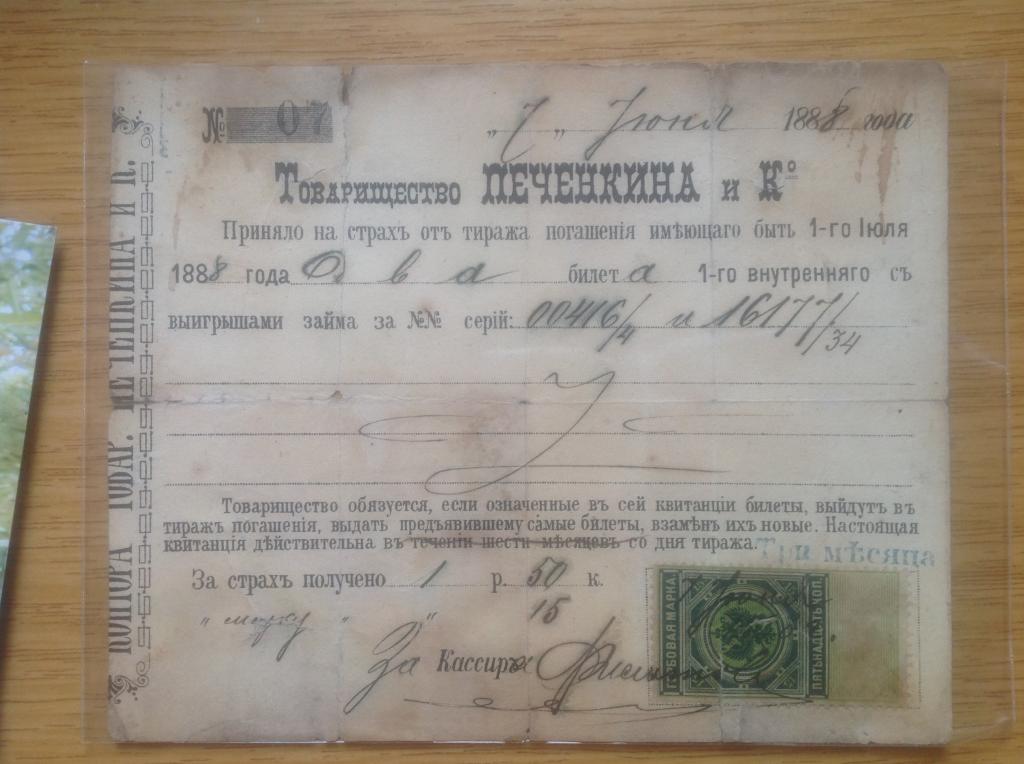 № 07
„ 7 „ Іюня 1888 года
Товарищество ПЕЧЕНКИНА и К°
Приняло на страхъ отъ тиража погашенія имѣющаго быть 1-го Іюля
1888 года Два билета 1-го внутренняго съ
выигрышами займа за №№ серій: 00416/4 и 16177/34
Товарищество обязуется, если означенные въ сей квитанціи билеты, выйдутъ въ
тиражъ погашенія, выдать предъявившему самые билеты, взамѣнъ ихъ новые. Настоящая
квитанція дѣйствительна въ теченіи шести мѣсяцевъ со дня тиража. Три мѣсяца
За страхъ получено 1 р. 50 к.
„ марку „ 15
За Кассиръ
КОНТОРА ТОВАР. ПЕЧЕНКИНА И К.
РБОВАЯ МАРКА
ПЯТЬНАДЦ-ТЬ КОП.